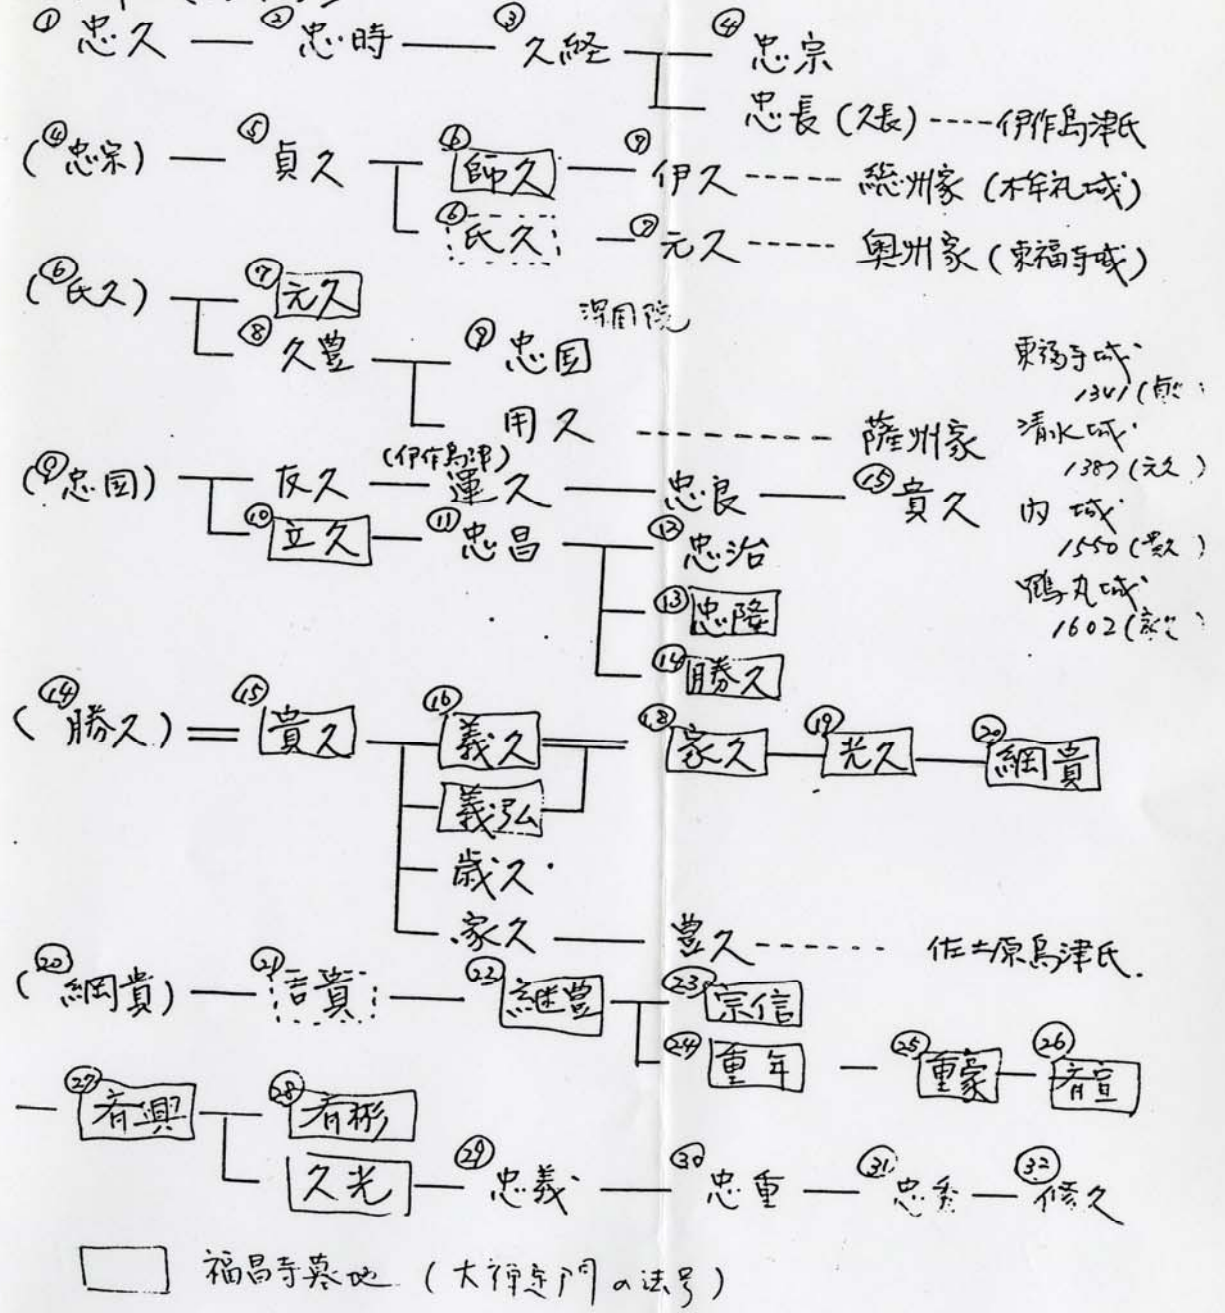 ① 忠久 — ② 忠時 — ③ 久経 — ④ 忠宗
忠長 (久長) ---- 伊作島津氏
(④忠宗) — ⑤ 貞久 — ⑥ 師久 — ⑦ 伊久 ----- 総州家 (木牟礼城)
⑥ 氏久 — ⑦ 元久 ----- 奥州家 (東福寺城)
(⑥氏久) — ⑦ 元久
深固院
⑧ 久豊 — ⑨ 忠国
用久 -------- 薩州家
東福寺城
1341 (貞久
清水城
1387 (元久)
内城
1550 (貴久)
鶴丸城
1602 (家久)
(⑨忠国) — 友久 — (伊作島津) 運久 — 忠良 — ⑮ 貴久
⑩ 立久 — ⑪ 忠昌 — ⑫ 忠治
⑬ 忠隆
⑭ 勝久
(⑭勝久) = ⑮ 貴久 — ⑯ 義久 = ⑱ 家久 — ⑲ 光久 — ⑳ 綱貴
義弘
歳久
家久 — 豊久 ------ 佐土原島津氏
(⑳綱貴) — ㉑ 吉貴 — ㉒ 継豊 — ㉓ 宗信
㉔ 重年 — ㉕ 重豪 — ㉖ 斉宣
— ㉗ 斉興 — ㉘ 斉彬
久光 — ㉙ 忠義 — ㉚ 忠重 — ㉛ 忠秀 — ㉜ 修久
福昌寺墓地 (大禅定門の法号)